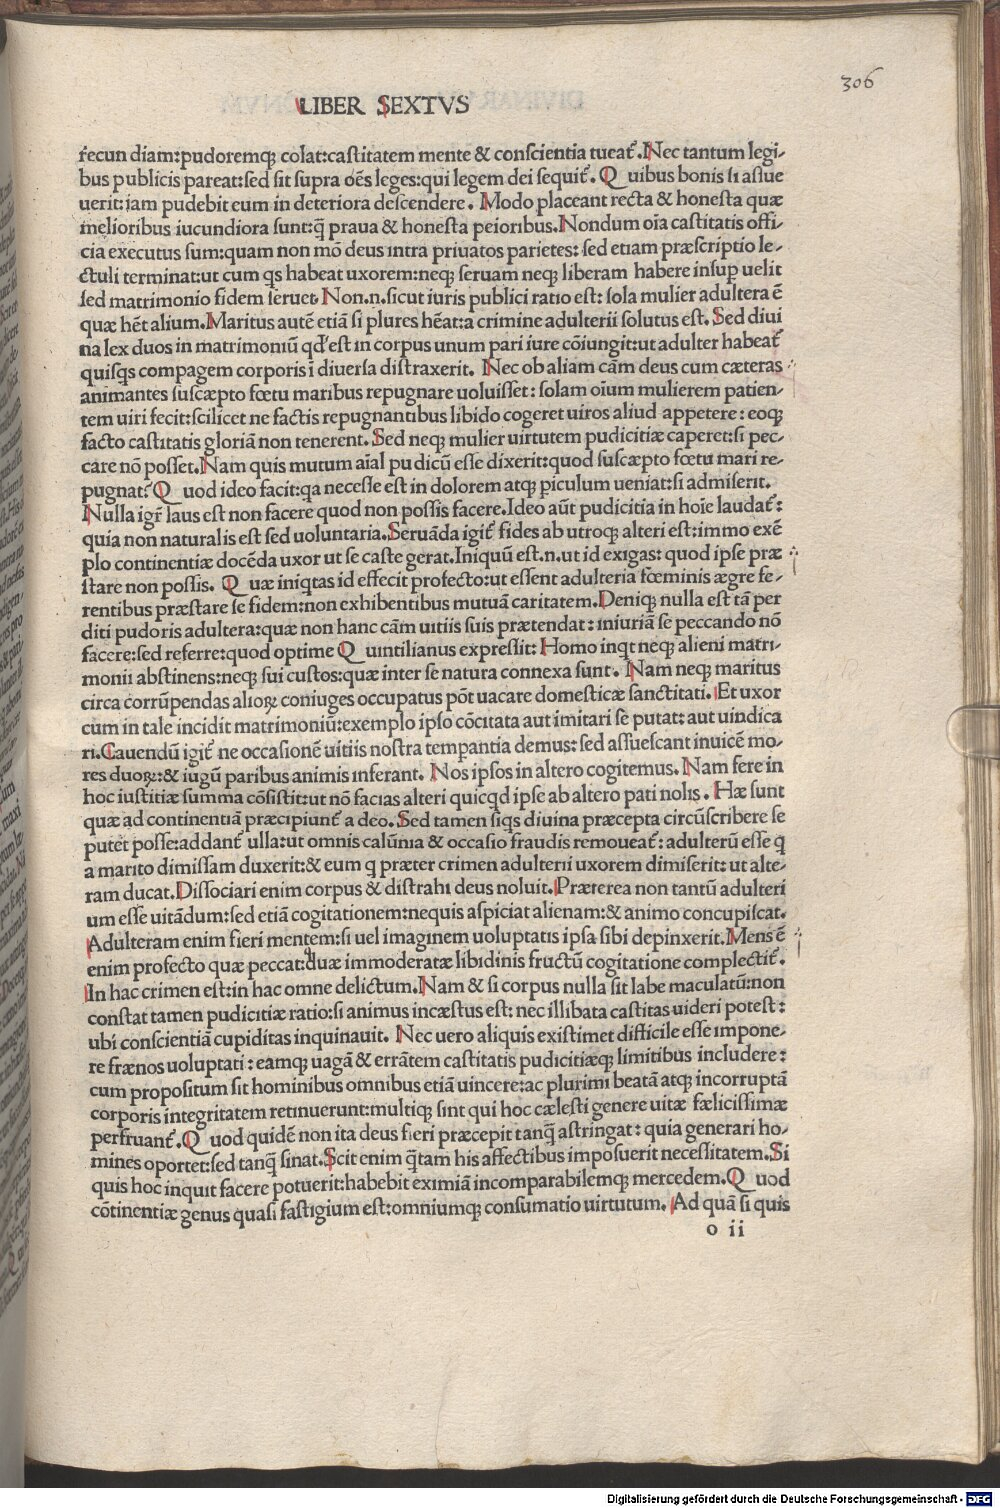 306
LIBER SEXTVS
recun diam:pudoremq; colat:castitatem mente & conscientia tueat̃. Nec tantum legi-
bus publicis pareat:sed sit supra oẽs leges:qui legem dei sequit̃. Q uibus bonis si assue
uerit:iam pudebit eum in deteriora descendere. Modo placeant recta & honesta quæ
melioribus iucundiora sunt:q̃ praua & honesta peioribus. Nondum oĩa castitatis offi-
cia executus sum:quam non mõ deus intra priuatos parietes: sed etiam præscriptio le-
ctuli terminat:ut cum qs habeat uxorem:neq; seruam neq; liberam habere insup uelit
sed matrimonio fidem seruet. Non.n.sicut iuris publici ratio est: sola mulier adultera ẽ
quæ hẽt alium. Maritus autẽ etiã si plures hẽat:a crimine adulterii solutus est. Sed diui
na lex duos in matrimoniũ qd̃ est in corpus unum pari iure cõiungit:ut adulter habeat̃
quisqs compagem corporis ĩ diuersa distraxerit. Nec ob aliam cãm deus cum cæteras
animantes suscæpto fœtu maribus repugnare uoluisset: solam oĩum mulierem patien-
tem uiri fecit:scilicet ne factis repugnantibus libido cogeret uiros aliud appetere: eoq;
facto castitatis gloriã non tenerent. Sed neq; mulier uirtutem pudicitiæ caperet:si pec-
care nõ posset. Nam quis mutum aĩal pudicũ esse dixerit:quod suscæpto fœtu mari re-
pugnat? Q uod ideo facit:qa necesse est in dolorem atq; piculum ueniat:si admiserit.
Nulla igr̃ laus est non facere quod non possis facere. Ideo aũt pudicitia in hoĩe laudat̃:
quia non naturalis est sed uoluntaria. Seruãda igit̃ fides ab utroq; alteri est:immo exẽ
plo continentiæ docẽda uxor ut se caste gerat. Iniquũ est.n.ut id exigas: quod ipse præ
stare non possis. Q uæ iniqtas id effecit profecto:ut essent adulteria fœminis ægre fe-
rentibus præstare se fidem:non exhibentibus mutuã caritatem. Deniq; nulla est tã per
diti pudoris adultera:quæ non hanc cãm uitiis suis prætendat: iniuriã se peccando nõ
facere:sed referre:quod optime Q uintilianus expressit: Homo inqt neq; alieni matri-
monii abstinens:neq; sui custos:quæ inter se natura connexa sunt. Nam neq; maritus
circa corrũpendas alioꝝ coniuges occupatus põt uacare domesticæ sanctitati. Et uxor
cum in tale incidit matrimoniũ:exemplo ipso cõcitata aut imitari se putat: aut uindica
ri. Cauendũ igit̃ ne occasionẽ uitiis nostra tempantia demus: sed assuescant inuicẽ mo-
res duoꝝ:& iugũ paribus animis inferant. Nos ipsos in altero cogitemus. Nam fere in
hoc iustitiæ summa cõsistit:ut nõ facias alteri quicqd ipse ab altero pati nolis. Hæ sunt
quæ ad continentiã præcipiunt̃ a deo. Sed tamen siqs diuina præcepta circũscribere se
putet posse:addant̃ ulla:ut omnis calũnia & occasio fraudis remoueat̃: adulterũ esse q
a marito dimissam duxerit:& eum q præter crimen adulterii uxorem dimiserit: ut alte-
ram ducat. Dissociari enim corpus & distrahi deus noluit. Præterea non tantũ adulteri
um esse uitãdum:sed etiã cogitationem:nequis aspiciat alienam:& animo concupiscat.
Adulteram enim fieri mentem:si uel imaginem uoluptatis ipsa sibi depinxerit. Mens ẽ
enim profecto quæ peccat:quæ immoderatæ libidinis fructũ cogitatione complectit̃.
In hac crimen est:in hac omne delictum. Nam & si corpus nulla sit labe maculatũ:non
constat tamen pudicitiæ ratio:si animus incæstus est: nec illibata castitas uideri potest:
ubi conscientiã cupiditas inquinauit. Nec uero aliquis existimet difficile esse impone-
re frænos uoluptati: eamq; uagã & errãtem castitatis pudicitiæq; limitibus includere:
cum propositum sit hominibus omnibus etiã uincere:ac plurimi beatã atq; incorruptã
corporis integritatem retinuerunt:multiq; sint qui hoc cælesti genere uitæ fælicissimæ
perfruant̃. Q uod quidẽ non ita deus fieri præcepit tanq̃ astringat: quia generari ho-
mines oportet:sed tanq̃ sinat. Scit enim q̃tam his affectibus imposuerit necessitatem. Si
quis hoc inquit facere potuerit:habebit eximiã incomparabilemq; mercedem. Q uod
cõtinentiæ genus quasi fastigium est:omniumq; consumatio uirtutum. Ad quã si quis
o ii
Digitalisierung gefördert durch die Deutsche Forschungsgemeinschaft - DFG